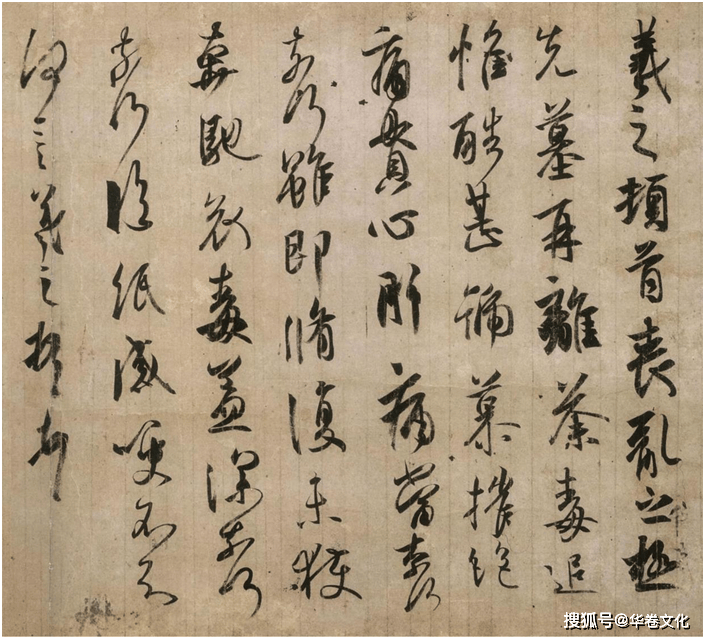 羲之頓首喪亂之極
先墓再離荼毒追
惟酷甚號慕摧絕
痛貫心肝痛當奈何
奈何雖即脩復未獲
奔馳哀毒益深奈何
奈何臨紙感哽不知
何言羲之頓首頓首
搜狐号@华卷文化